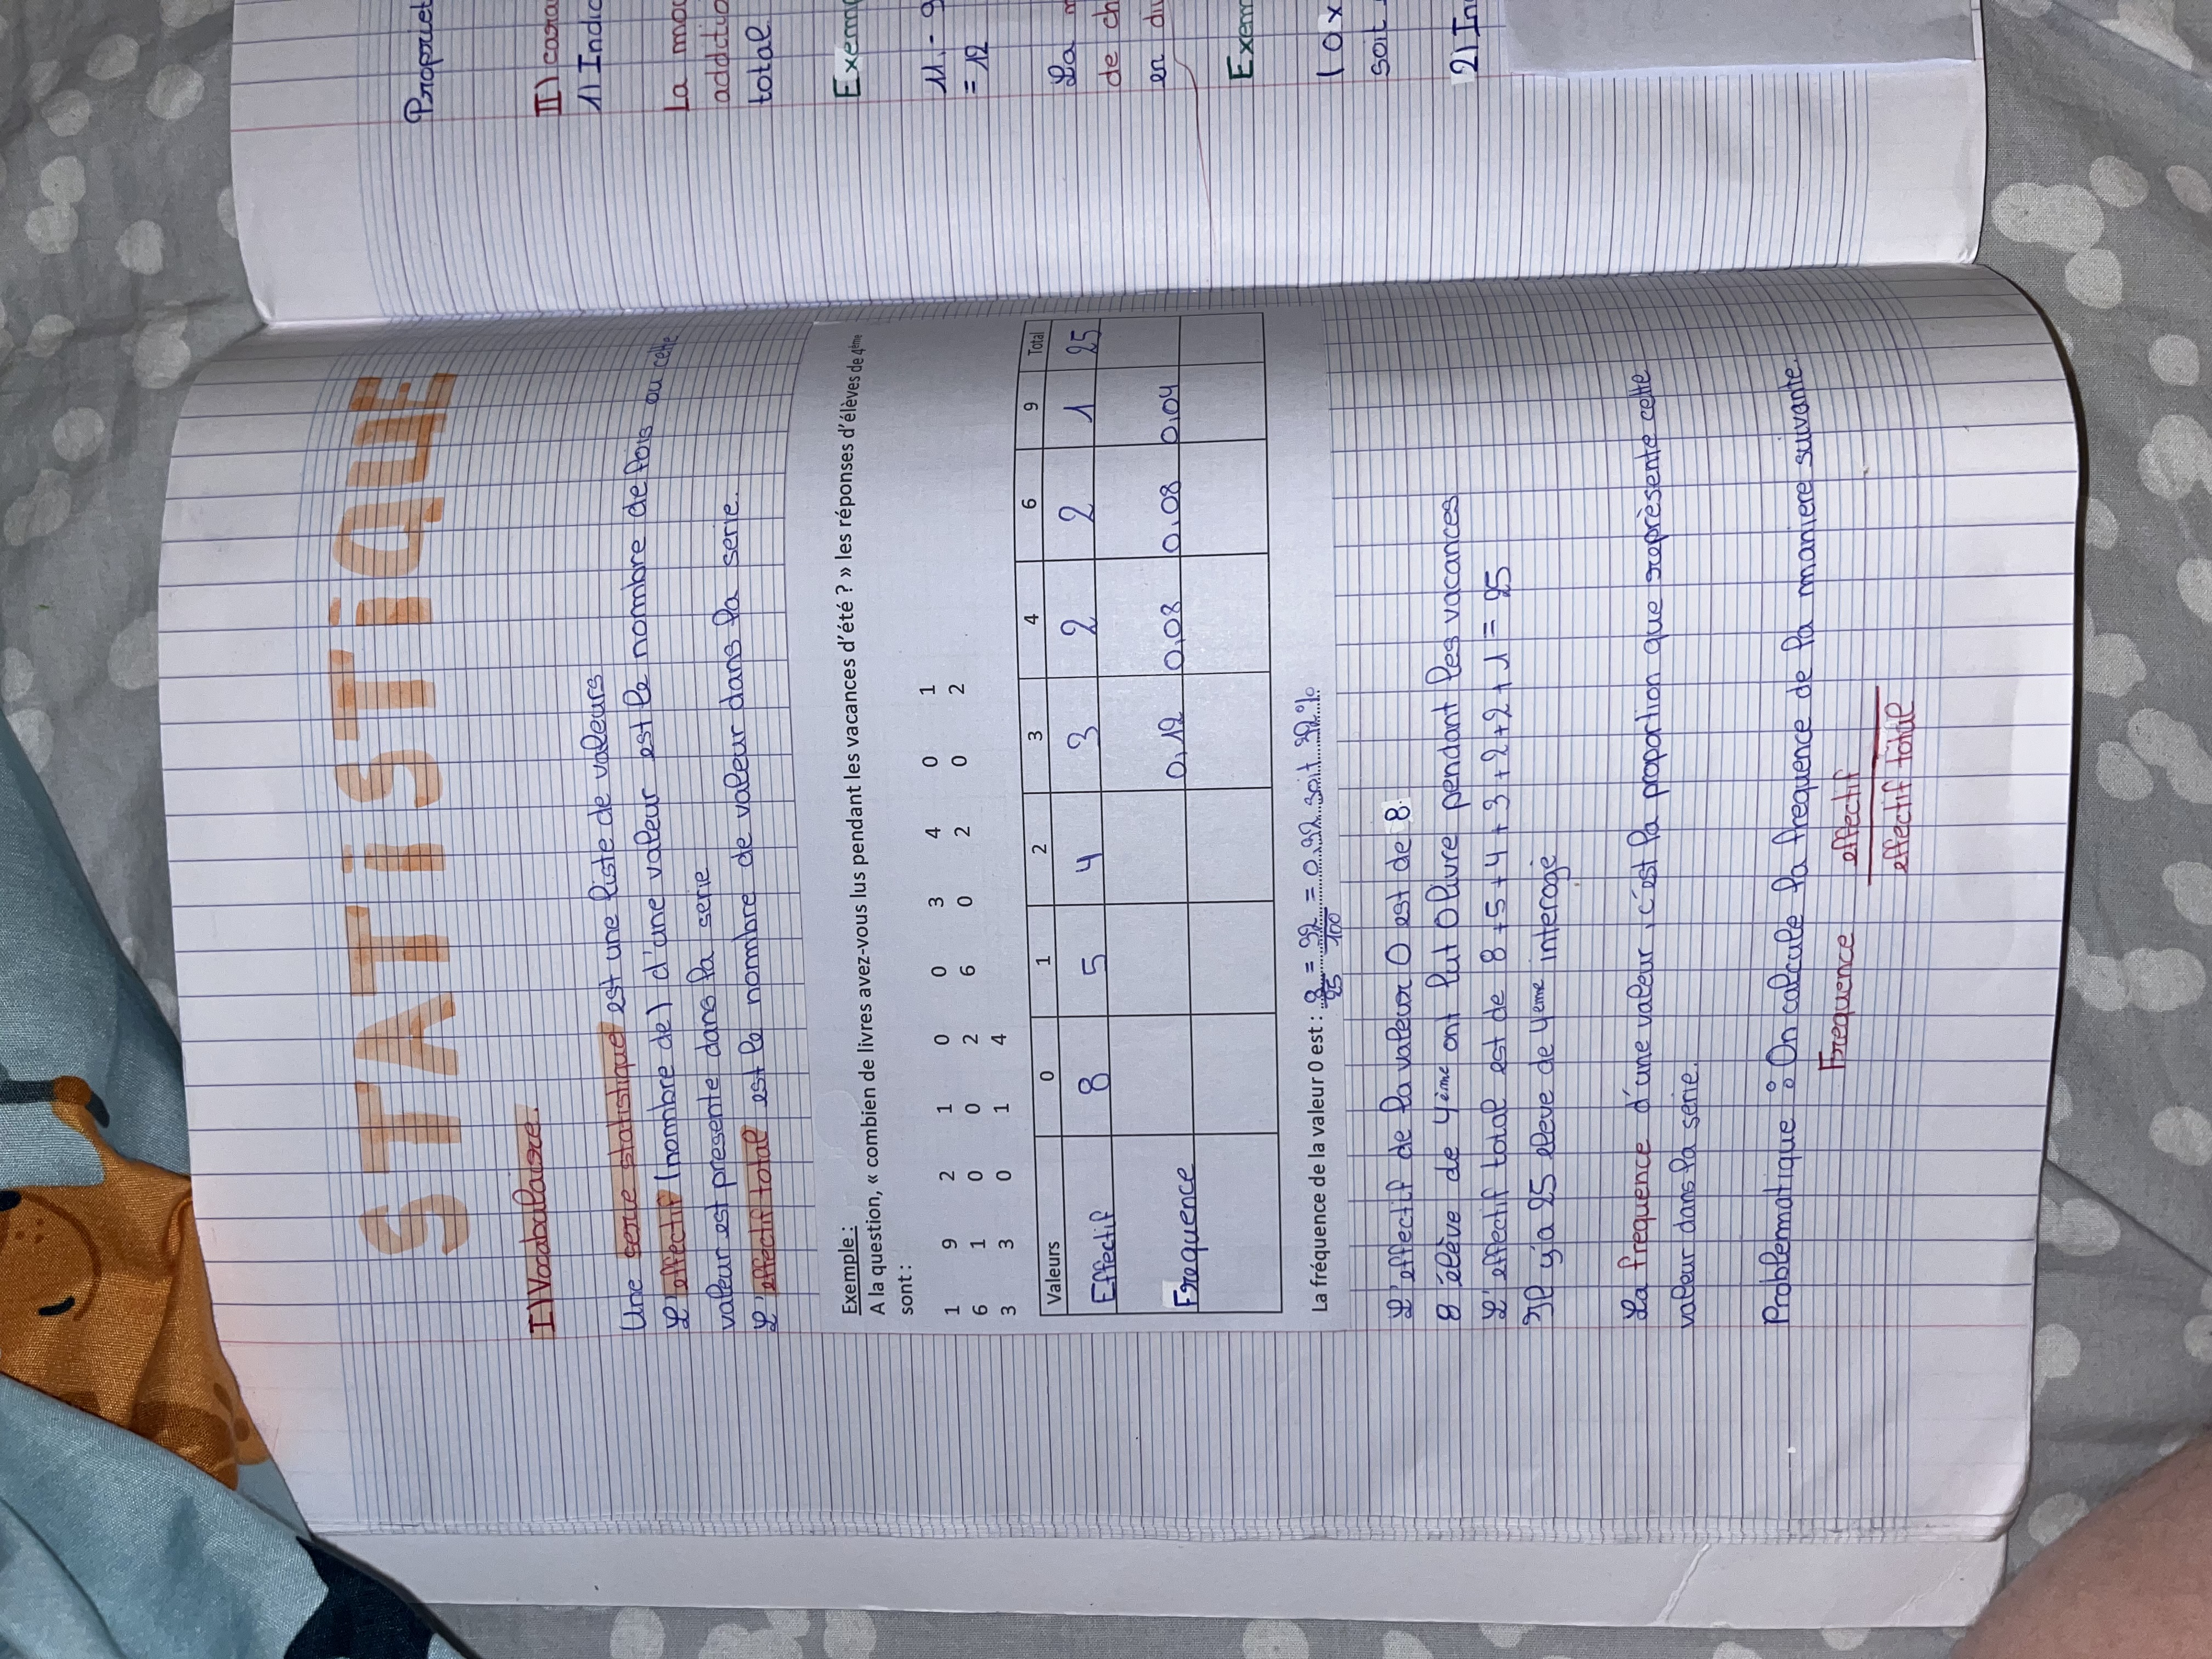 STATiSTiQUE
I) Vocabulaire.
Une serie statistique est une liste de valeurs
L'effectif (nombre de) d'une valeur est le nombre de fois ou cette
valeur est presente dans la serie
L'effectif total est le nombre de valeur dans la serie.
Exemple :
A la question, « combien de livres avez-vous lus pendant les vacances d'été ? » les réponses d'élèves de 4ème
sont :
1 9 2 1 0 0 3 4 0 1
6 1 0 0 2 6 0 2 0 2
3 3 0 1 4
Valeurs 0 1 2 3 4 6 9 Total
Effectif 8 5 4 3 2 2 1 25
Frequence 0,12 0,08 0,08 0,04
La fréquence de la valeur 0 est : 8/25 = 32/100 = 0,32 soit 32%
L'effectif de la valeur 0 est de 8.
8 élève de 4ème ont lut 0 livre pendant les vacances
L'effectif total est de 8+5+4+3+2+2+1 = 25
Il y'a 25 eleve de 4eme interogé
La frequence d'une valeur, c'est la proportion que représente cette
valeur dans la serie.
Problematique : On calcule la frequence de la maniere suivante.
Frequence effectif
effectif total
Propriet
II) cara
1) Indic
La mo
additio
total
Exem
11 - 9
= 12
La m
de ch
en di
Exem
( 0x
soit
2) In